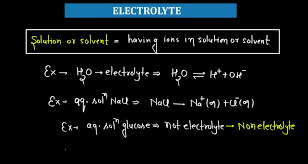 ELECTROLYTE
Solution or solvent = having ions in solution or solvent
Ex → H₂O → electrolyte ⇒ H₂O ⇌ H⁺ + OH⁻
Ex → aq. solⁿ NaCl ⇒ NaCl → Na⁺(q) + Cl⁻(q)
Ex → aq. solⁿ glucose ⇒ not electrolyte → Nonelectrolyte